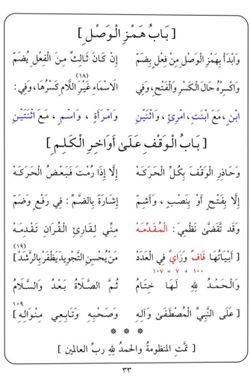 [ بَابُ هَمْزِ الْوَصْلِ ]
وَابْدَأْ بِهَمْزِ الْوَصْلِ مِنْ فِعْلٍ بِضَمْ إِنْ كَانَ ثَالِثٌ مِنَ الْفِعْلِ يُضَمْ
وَاكْسِرْهُ حَالَ الْكَسْرِ وَالْفَتْحِ، وَفِي الْاسْمَاءِ غَيْرَ اللَّامِ كَسْرُهَا، وَفِي: (١٨)
ابْنٍ، مَعَ ابْنَتِ، امْرِئٍ، وَاثْنَيْنِ وَامْرَأَةٍ، وَاسْمٍ، مَعَ اثْنَتَيْنِ
[ بَابُ الْوَقْفِ عَلَىٰ أَوَاخِرِ الْكَلِمِ ]
وَحَاذِرِ الْوَقْفَ بِكُلِّ الْحَرَكَهْ إِلَّا إِذَا رُمْتَ فَبَعْضُ الْحَرَكَهْ
إِلَّا بِفَتْحٍ أَوْ بِنَصْبٍ، وَأَشِمْ إِشَارَةً بِالضَّمِّ: فِي رَفْعٍ وَضَمْ
وَقَد تَّقَضَّىٰ نَظْمِيَ: الْمُقَدِّمَهْ مِنِّي لِقَارِئِ الْقُرَانِ تَقْدِمَهْ
أَبْيَاتُهَا قَافٌ وَزَايٌ فِي الْعَدَدْ مَن يُحْسِنِ التَّجْوِيدَ يَظْفَرْ بِالرَّشَدْ (١٩)
١٠٠ + ٧ = ١٠٧
وَالْحَمْدُ لِلَّهِ لَهَا خِتَامُ ثُمَّ الصَّلَاةُ بَعْدُ وَالسَّلَامُ
عَلَى النَّبِيِّ الْمُصْطَفَىٰ وَآلِهِ وَصَحْبِهِ وَتَابِعِي مِنْوَالِهِ ١٠٩
* * *
[ تَمَّتِ المنظومةُ والحمدُ للهِ ربِّ العالمين ]
٣٣